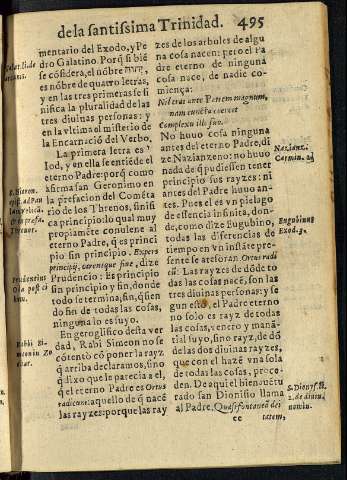 de la santissima Trinidad. 495
mentario del Exodo, y Pe
dro Galatino. Porq̃ si biẽ
se cõsidera, el nõbre יהוה,
es nõbre de quatro letras,
y en las tres primeras se si
nifica la pluralidad de las
tres diuinas personas: y
en la vltima el misterio de
la Encarnació del Verbo.
La primera letra es
Iod, y en ella se entiẽde el
eterno Padre: porq̃ como
afirma san Geronimo en
la prefacion del Cometa
rio de los Threnos, sinifi
ca principio lo qual muy
propiamẽte conuiene al
eterno Padre, q̃ es princi
pio sin principio. Expers
principij, carensque fine, dize
Prudencio: Es principio
sin principio y fin, donde
todo se termina; fin, q̃ siẽn
do fin de todas las cosas,
ninguna lo es suyo.
En geroglifico desta ver
dad, Rabi Simeon no se
cõtentò cõ poner la rayz
q̃ arriba declaramos, sino
q̃ dixo que le parecia a el,
q̃ el eterno Padre es Ortus
radicum: aquello de q̃ nacẽ
las rayzes: porque las ray
S. Hieron.
Threnor.
Prudentius
Rabbi Si
meon in Zo
har.
zes de los arboles de algu
na cosa nacen: pero el Pa
dre eterno de ninguna
cosa nace, de nadie co-
miença:
Nil eras ante Patrem magnum,
nam cuncta coercet
Complexu ille suo.
No huuo cosa ninguna
antes del eterno Padre, di
ze Nazianzeno: no huuo
nada de q̃ pudiessen tener
principio sus rayzes: ni
antes del Padre huuo an-
tes. Pues el es vn pielago
de essencia infinita, don-
de, como dize Eugubino,
todas las diferencias de
tiempo en vn instãte pre-
sente se atesoran Ortus radi
cũ: Las rayzes de dõde to
das las cosas nacẽ, son las
tres diuinas personas: y se
gun esto, el Padre eterno
no solo es rayz de todas
las cosas, venero y manã-
tial suyo, sino rayz, de dõ
de las dos diuinas rayzes,
que con el hazẽ vna sola
de todas las cosas, proce-
den. De aqui el bienauẽtu
rado san Dionisio llama
al Padre, Quasi fontaneã dei
tatem,
Nazianz.
Carmin. ad
Eugubinus
Exod. 3.
S. Dionys. li.
2. de diuin.
nomin.